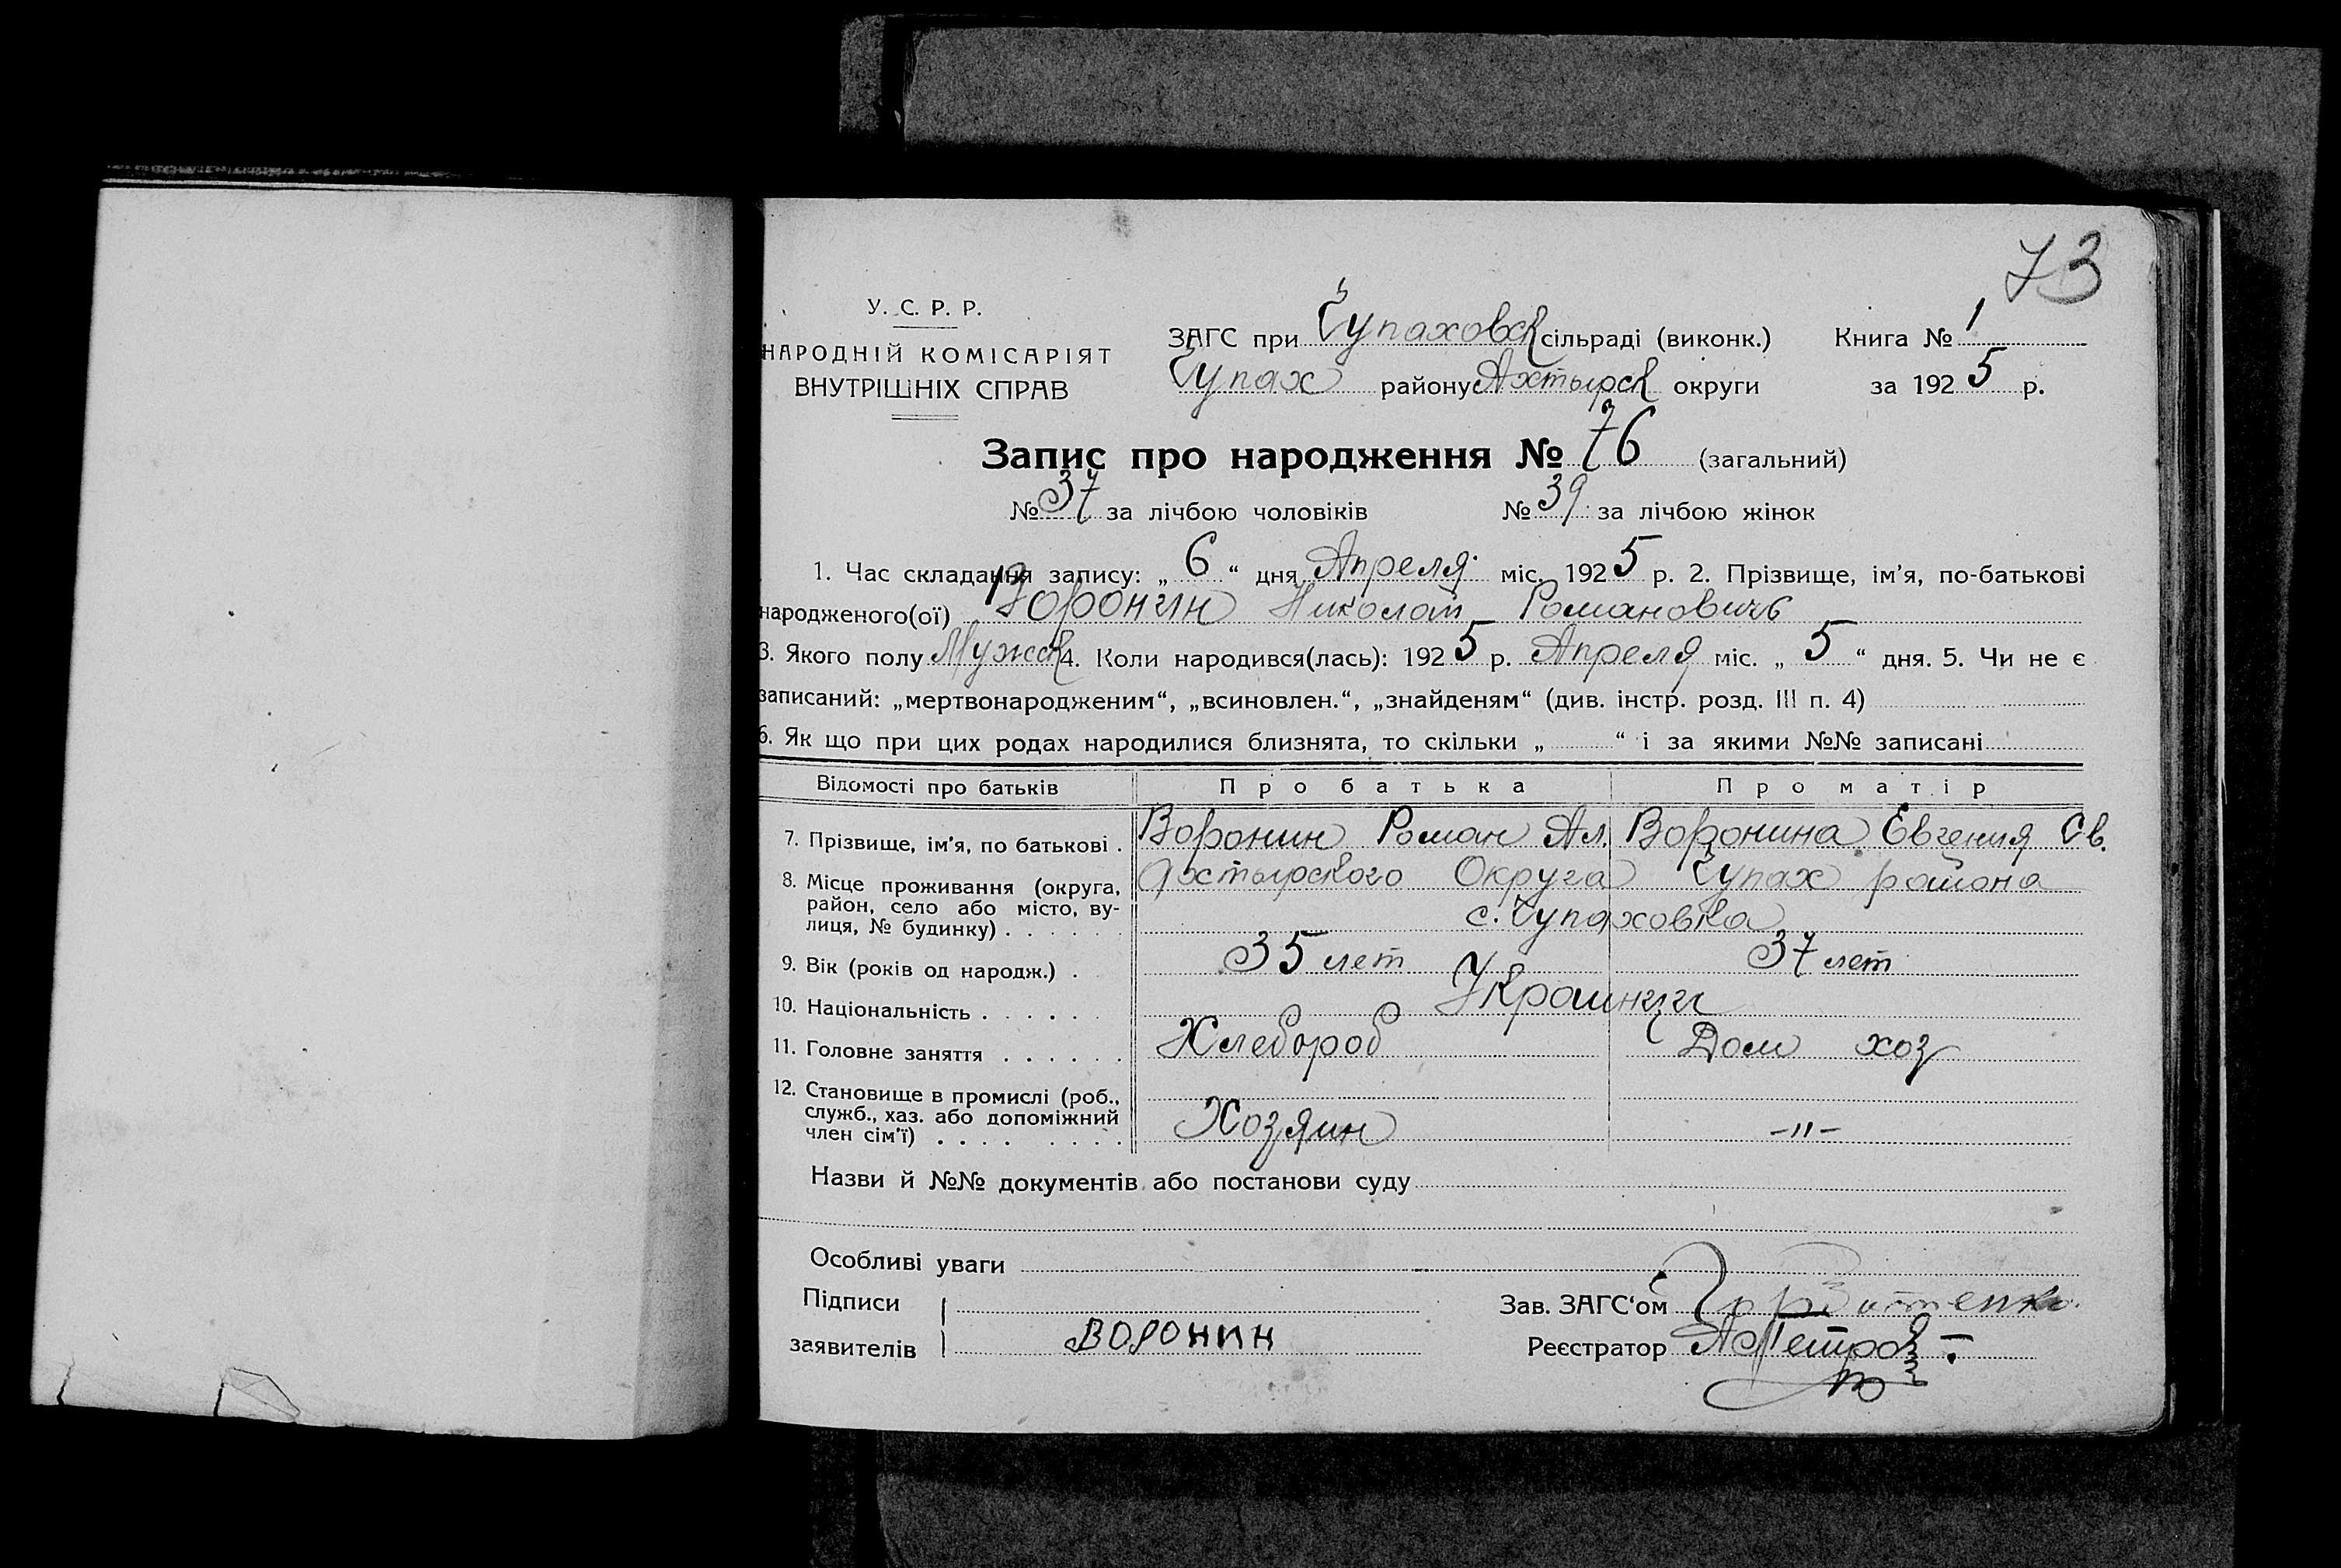 73
У. С. Р. Р.
НАРОДНІЙ КОМІСАРІЯТ
ВНУТРІШНІХ СПРАВ
ЗАГС при Чупаховск сільраді (виконк.) Книга № 1
Чупах району Ахтырск округи за 1925 р.
Запис про народження № 76 (загальний)
№ 37 за лічбою чоловіків № 39 за лічбою жінок
1. Час складання запису: „ 6 “ дня Апреля міс. 1925 р. 2. Прізвище, ім’я, по-батькові
народженого(ої) Воронин Николай Романовичъ
3. Якого полу Мужск 4. Коли народився(лась): 1925 р. Апреля міс. „ 5 “ дня. 5. Чи не є
записаний: „мертвонародженим“, „всиновлен.“, „знайденям“ (див. інстр. розд. III п. 4)
6. Як що при цих родах народилися близнята, то скільки „ “ і за якими №№ записані
Відомості про батьків Про батька Про матір
7. Прізвище, ім’я, по батькові . Воронин Роман Ал. Воронина Евгения Св.
8. Місце проживання (округа, Ахтырского Округа Чупах района
район, село або місто, ву-
лиця, № будинку) . . . . . с. Чупаховка
9. Вік (років од народж.) . 35 лет 37 лет
10. Національність . . . . . . Украинци
11. Головне заняття . . . . . . Хлебороб Дом хоз
12. Становище в промислі (роб.,
служб., хаз. або допоміжний
член сім’ї) . . . . . . . . Хозяин -"-
Назви й №№ документів або постанови суду
Особливі уваги
Підписи Зав. ЗАГС‘ом
заявителів Воронин Реєстратор А Петров